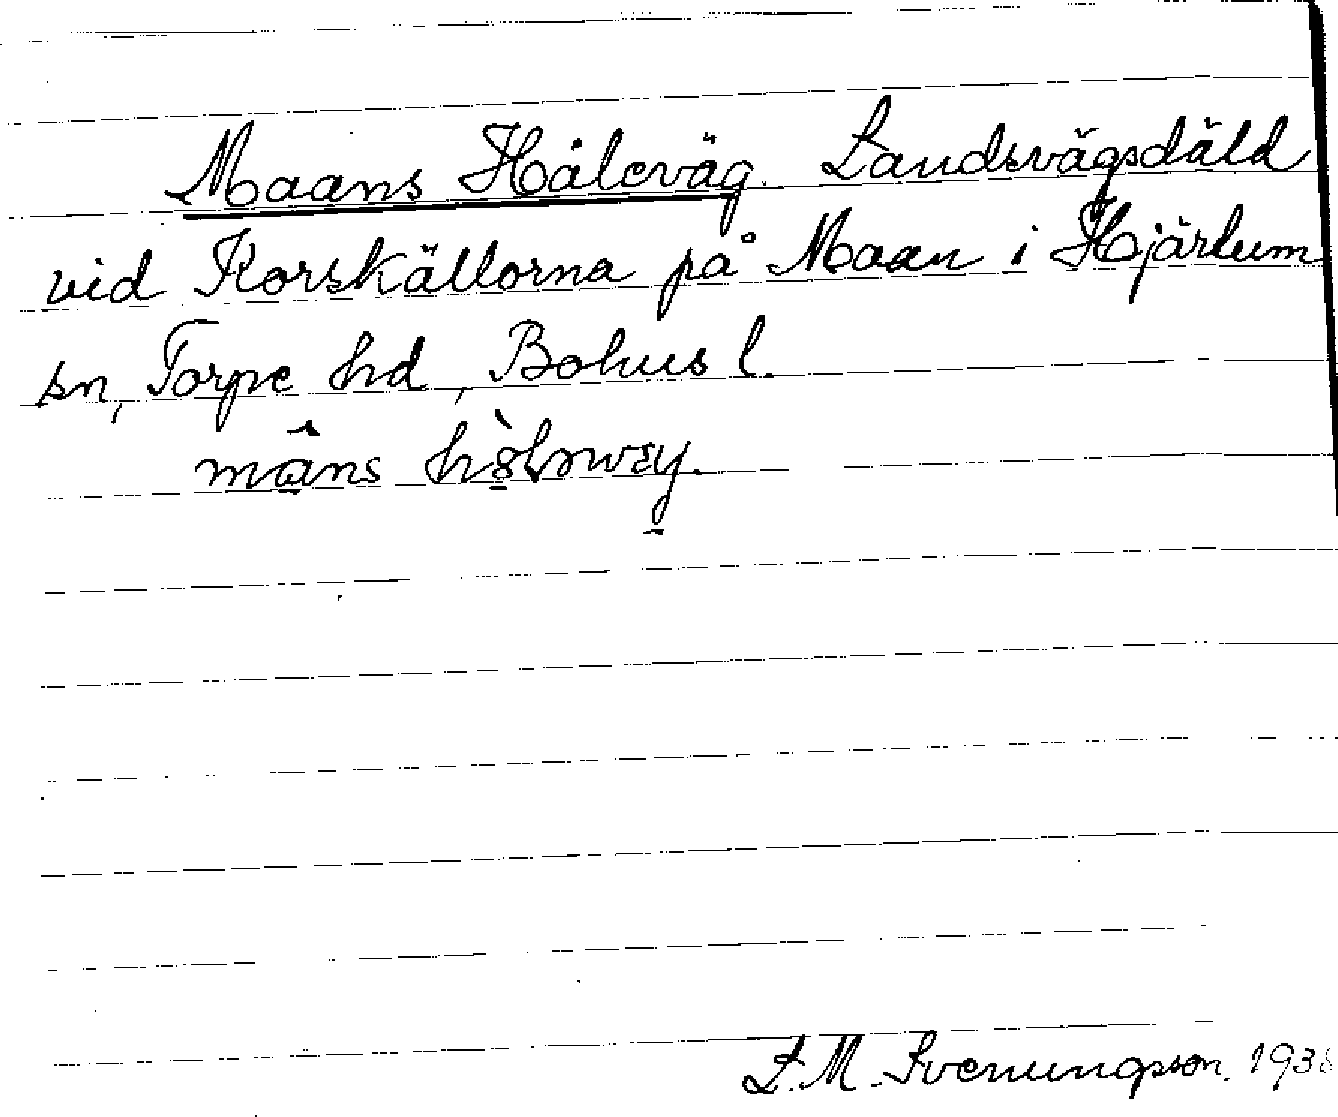 Maans Håleväg. Landsvägsdäld
vid Korskällorna på Maan i Hjärtum
sn, Torpe hd, Bohus l.
L.M. Svenungsson. 1938